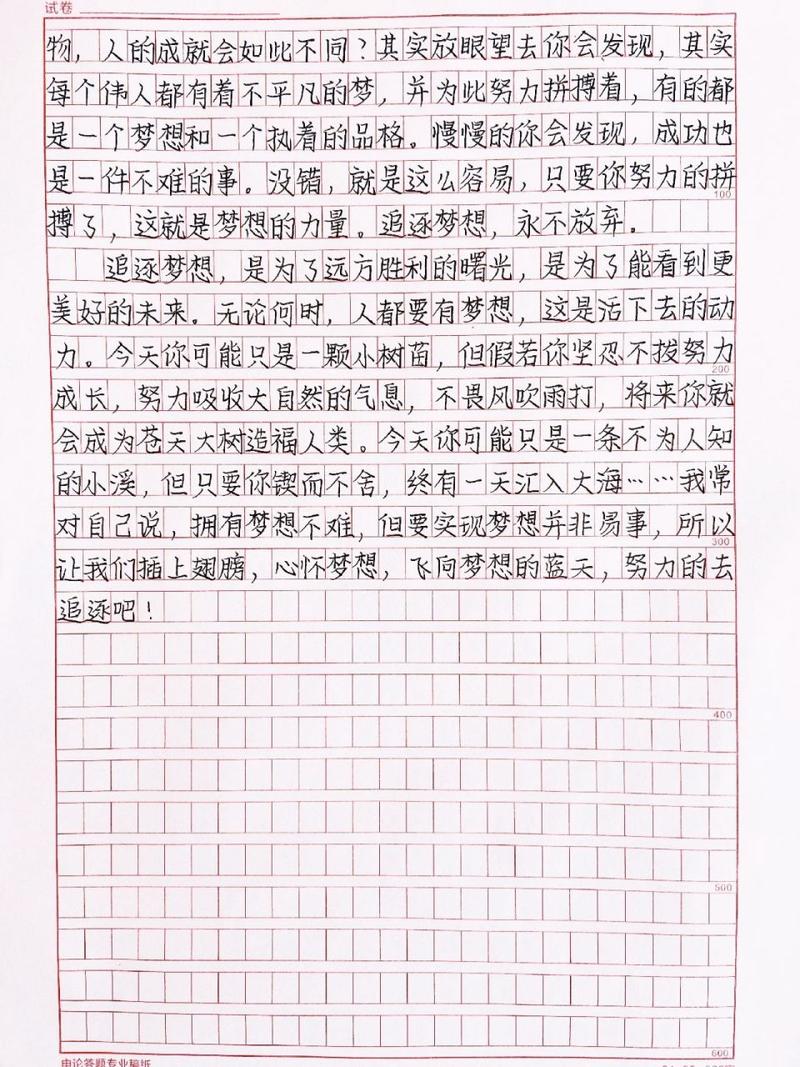 试卷
物，人的成就会如此不同？其实放眼望去你会发现，其实
每个伟人都有着不平凡的梦，并为此努力拼搏着，有的都
是一个梦想和一个执着的品格。慢慢的你会发现，成功也
是一件不难的事。没错，就是这么容易，只要你努力的拼
100
搏了，这就是梦想的力量。追逐梦想，永不放弃。
追逐梦想，是为了远方胜利的曙光，是为了能看到更
美好的未来。无论何时，人都要有梦想，这是活下去的动
力。今天你可能只是一颗小树苗，但假若你坚忍不拔努力
200
成长，努力吸收大自然的气息，不畏风吹雨打，将来你就
会成为苍天大树造福人类。今天你可能只是一条不为人知
的小溪，但只要你锲而不舍，终有一天汇入大海……我常
对自己说，拥有梦想不难，但要实现梦想并非易事，所以
300
让我们插上翅膀，心怀梦想，飞向梦想的蓝天，努力的去
追逐吧！
400
500
600
申论答题专业稿纸